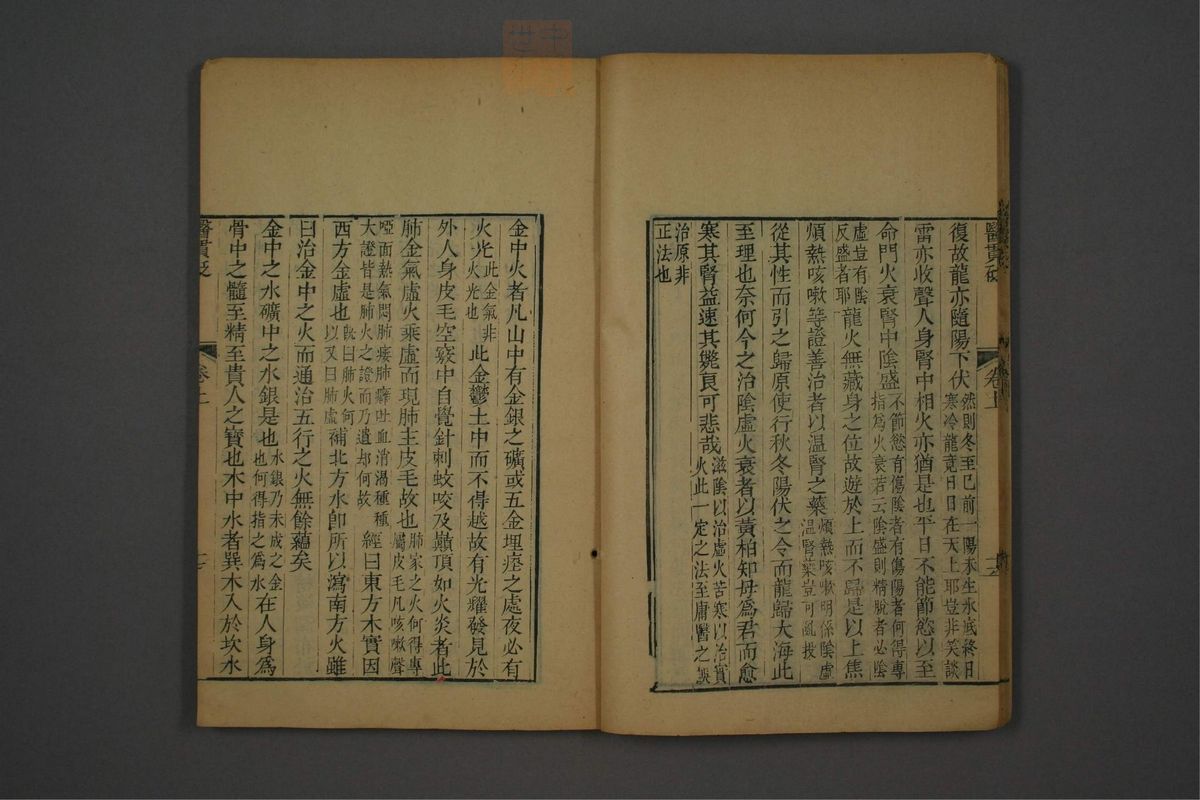 醫貫砭
卷上
復故龍亦隨陽下伏然則冬至已前一陽未生水底終日寒冷龍竟日日在天上耶豈非笑談
雷亦收聲人身腎中相火亦猶是也平日不能節慾以至
命門火衰腎中陰盛不節慾有傷陰者有傷陽者何得專指爲火衰若云陰盛則精脫者必陰
虛豈有陰反盛者耶龍火無藏身之位故遊於上而不歸是以上焦
煩熱咳嗽等證善治者以溫腎之藥煩熱咳嗽明係陰虛溫腎藥豈可亂投
從其性而引之歸原使行秋冬陽伏之令而龍歸大海此
至理也奈何今之治陰虛火衰者以黃柏知母爲君而愈
寒其腎益速其斃良可悲哉滋陰以治虛火苦寒以治實火此一定之法至庸醫之誤
治原非正法也
金中火者凡山中有金銀之礦或五金埋瘞之處夜必有
火光此金氣非火光也此金鬱土中而不得越故有光耀發見於
外人身皮毛空竅中自覺針刺蚊咬及巔頂如火炎者此
肺金氣虛火乘虛而現肺主皮毛故也肺家之火何得專屬皮毛凡咳嗽聲
啞面熱氣悶肺痿肺癰吐血消渴種種大證皆是肺火之證而乃遺却何故經曰東方木實因
西方金虛也旣曰肺火何以又曰肺虛補北方水卽所以瀉南方火雖
曰治金中之火而通治五行之火無餘蘊矣
金中之水礦中之水銀是也水銀乃未成之金也何得指之爲水在人身爲
骨中之髓至精至貴人之寶也木中水者巽木入於坎水
醫貫砭
卷上